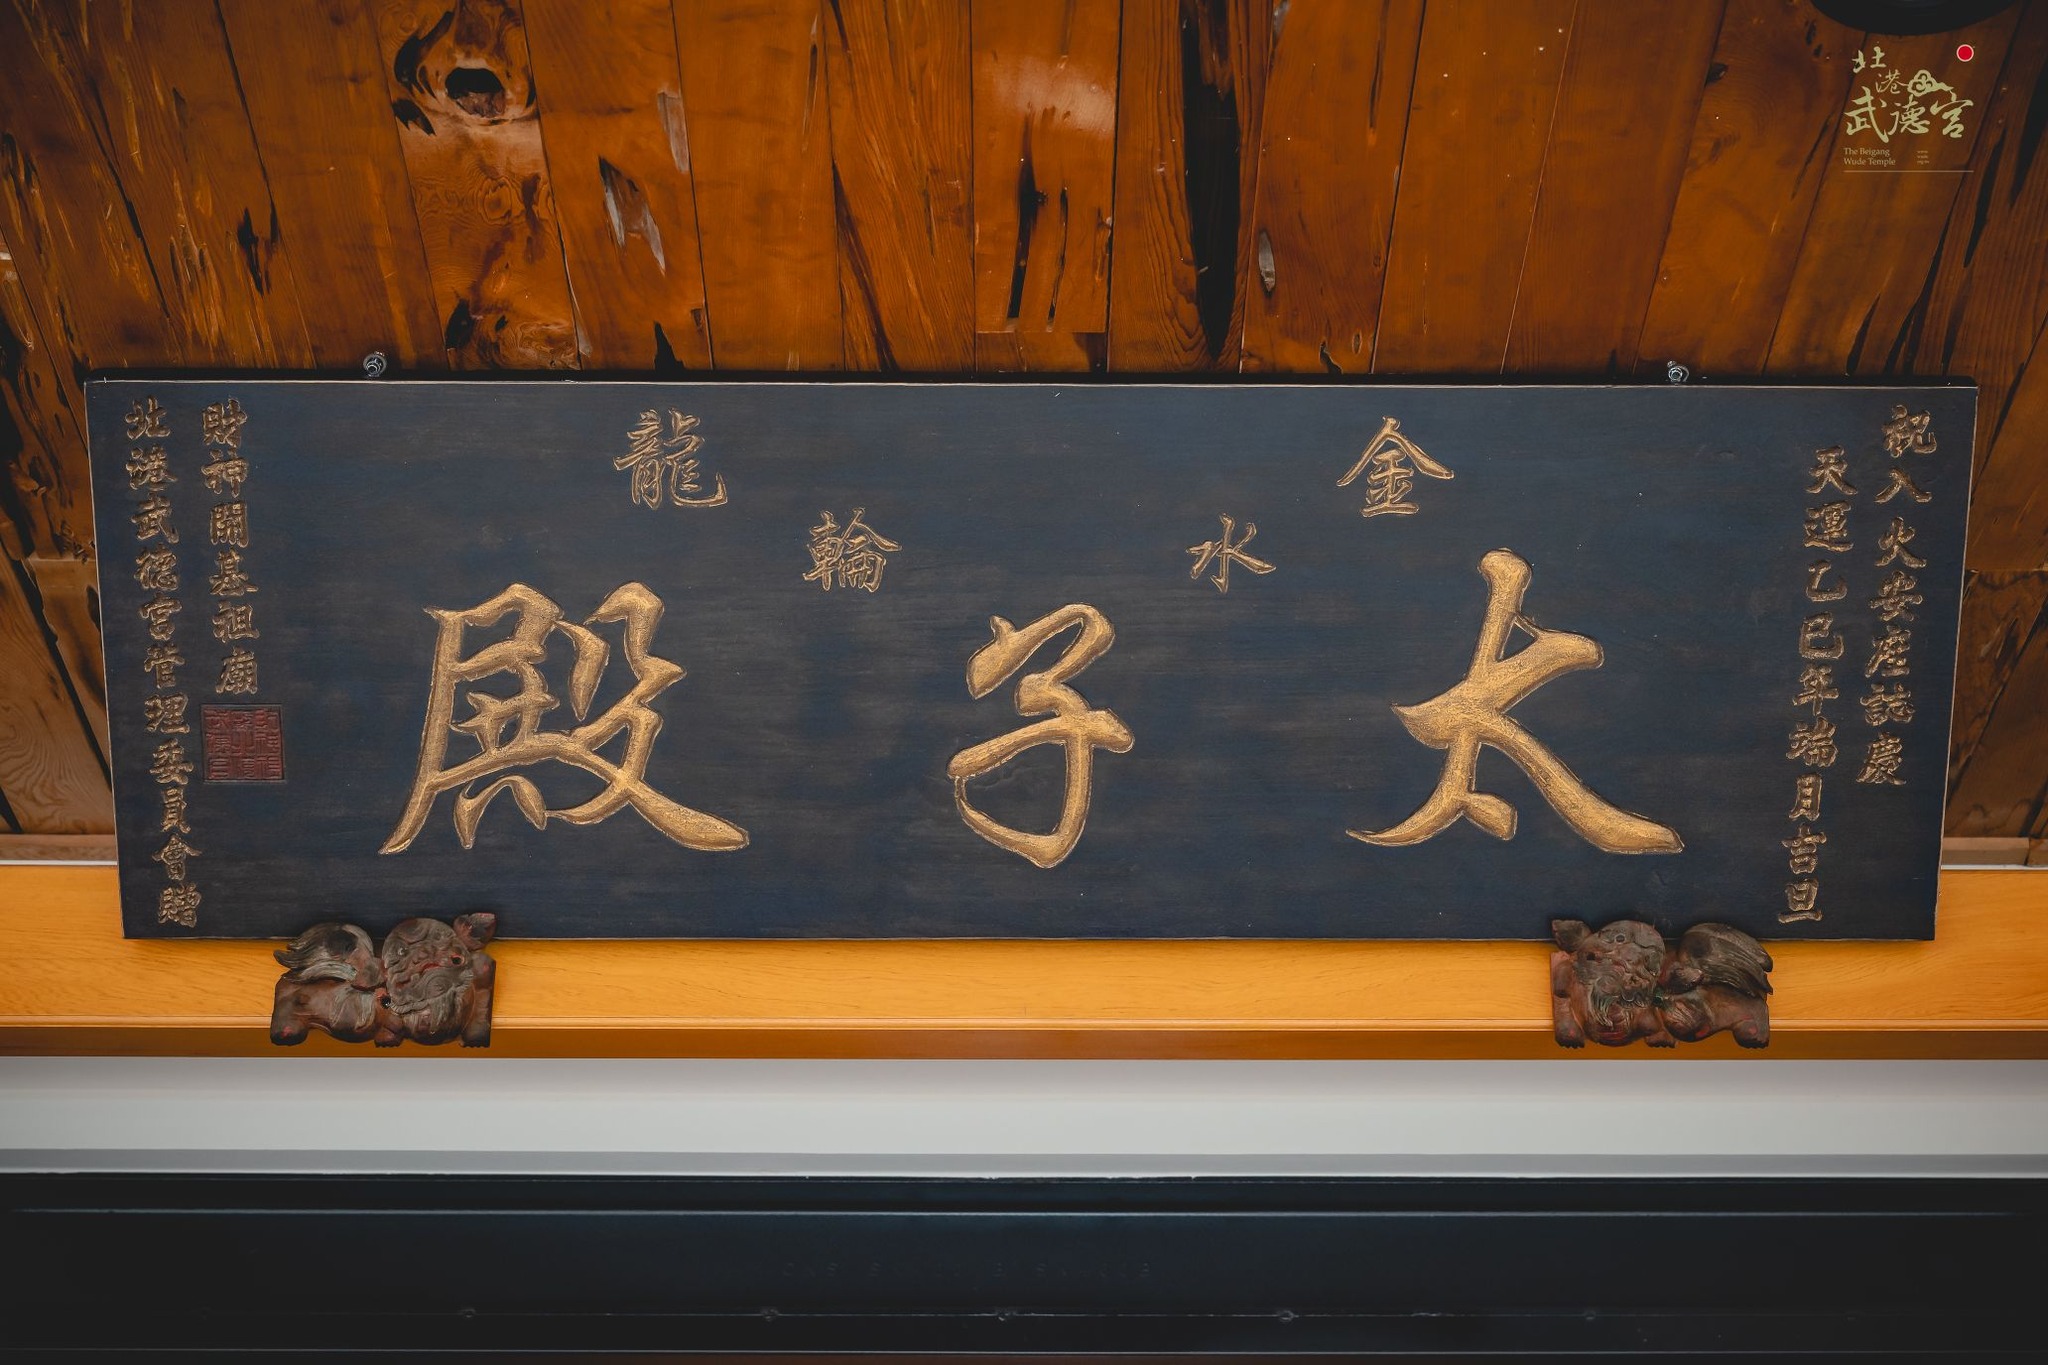 祝入火安座誌慶
天運乙巳年端月吉旦
金水輪龍
太子殿
財神開基祖廟
北港武德宮管理委員會贈
北港武德宮
The Beigang
Wude Temple